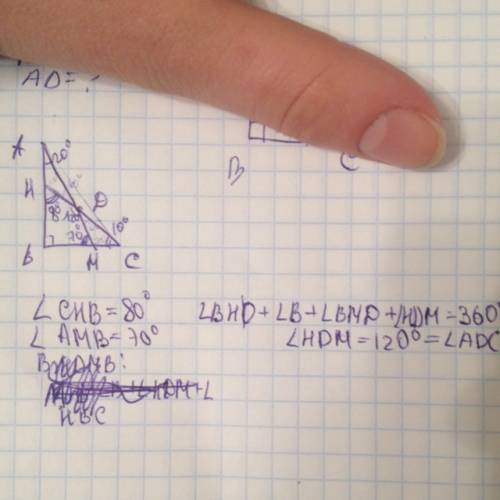 AD = ?
B C
A 20°
H D
80° 120° 10°
70°
B M C
∠CHB = 80°
∠AMB = 70°
∠BHD + ∠B + ∠BMD + ∠HDM = 360°
∠HDM = 120° = ∠ADC
HBC